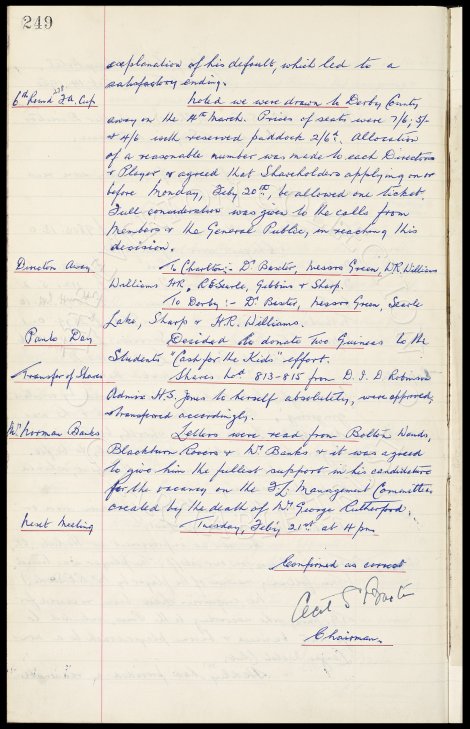 249
explanation of his default, which led to a
satisfactory ending.
6th Round F.A. Cup
Noted we were drawn to Derby County
away on the 4th March. Prices of seats were 7/6, 5/-
& 4/6 with reserved paddock 2/6d. Allocation
of a reasonable number was made to each Director
& Player & agreed that Shareholders applying on or
before Monday, Feby 20th, be allowed one ticket.
Full consideration was given to the calls from
Members & the General Public, in reaching this
decision.
Directors Away
To Charlton:- Dr Baxter, Messrs Green, W.R. Williams
Williams H.R., R.E. Searle, Gibbins & Sharp.
To Derby:- Dr Baxter, Messrs Green, Searle
Lake, Sharp & H.R. Williams.
Panto Day
Decided to donate Two Guineas to the
Students "Cash for the Kids" effort.
Transfer of Shares
Shares Nos 813-815 from D. I. D. Robinson
Admix H.S. Jones to herself absolutely, were approved,
& transferred accordingly.
Mr Norman Banks
Letters were read from Bolton Wands,
Blackburn Rovers & Mr Banks & it was agreed
to give him the fullest support in his candidature
for the vacancy on the F.L. Management Committee
created by the death of Mr George Rutherford.
Next Meeting
Tuesday, Feby 21st at 4 pm
Confirmed as correct
Cecil S Baxter
Chairman.